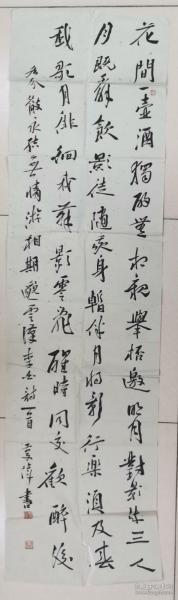 花間一壺酒獨酌無相親舉杯邀明月對影成三人
月既不解飲影徒隨我身暫伴月將影行樂須及春
我歌月徘徊我舞影零亂醒時同交歡醉後
各分散永結無情游相期邈雲漢李白詩一首 書